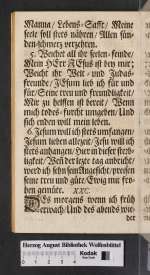 Manna / Lebens-Safft / Meine
seele soll stets nähren / Allen sün-
den-schmertz verzehren.
5. Weichet all ihr seelen-feinde /
Mein HErr JEsus ist bey mir;
Weicht ihr Welt- und Judas-
freunde / JEsum lieb ich für und
für / Seine treu und freundligkeit /
Mir zu helffen ist bereit / Wenn
mich todes-furcht umgeben / Und
sich enden will mein leben.
6. JEsum will ich stets umfangen /
JEsum lieben allezeit / JEsu will ich
stets anhangen / Hier in dieser sterb-
ligkeit / Wenn der letzte tag anbricht /
werd ich sehn sein Angesicht / preisen
seine treu und güte / Ewig mit fro-
hen gemüte. XXC.
Des morgens wenn ich früh
und des abends wie-
der
Herzog August Bibliothek Wolfenbüttel
Kodak